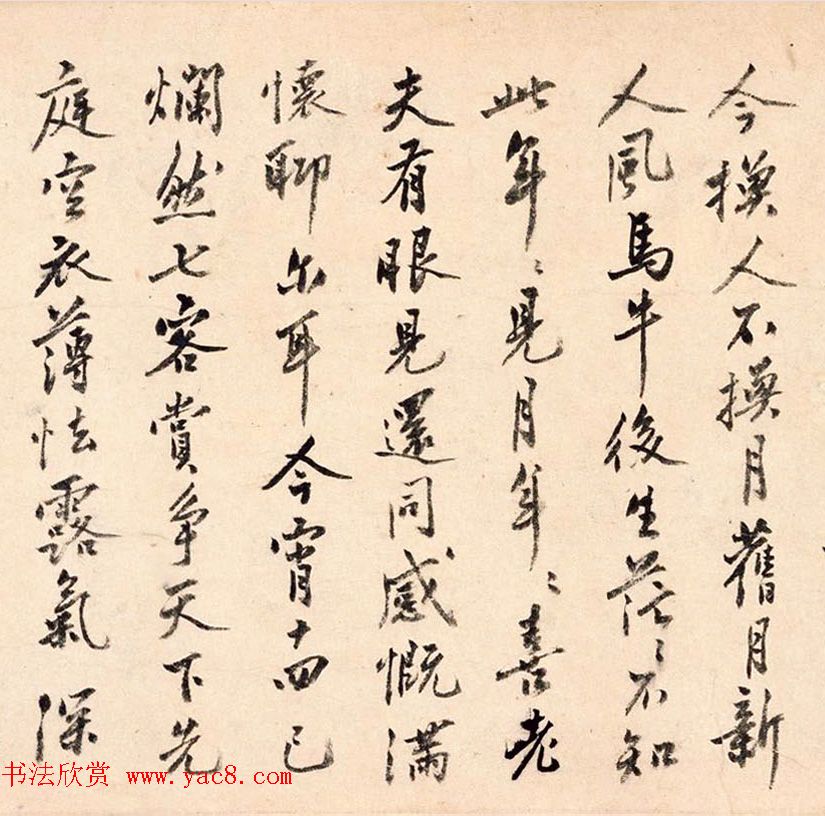 今換人不換月舊月新
人風馬牛後生茫〻不知
此年〻見月年〻喜老
夫有眼見還同感慨滿
懷聊尔耳今宵十四已
爛然七客賞爭天下先
庭空衣薄怯露氣深
书法欣赏 www.yac8.com